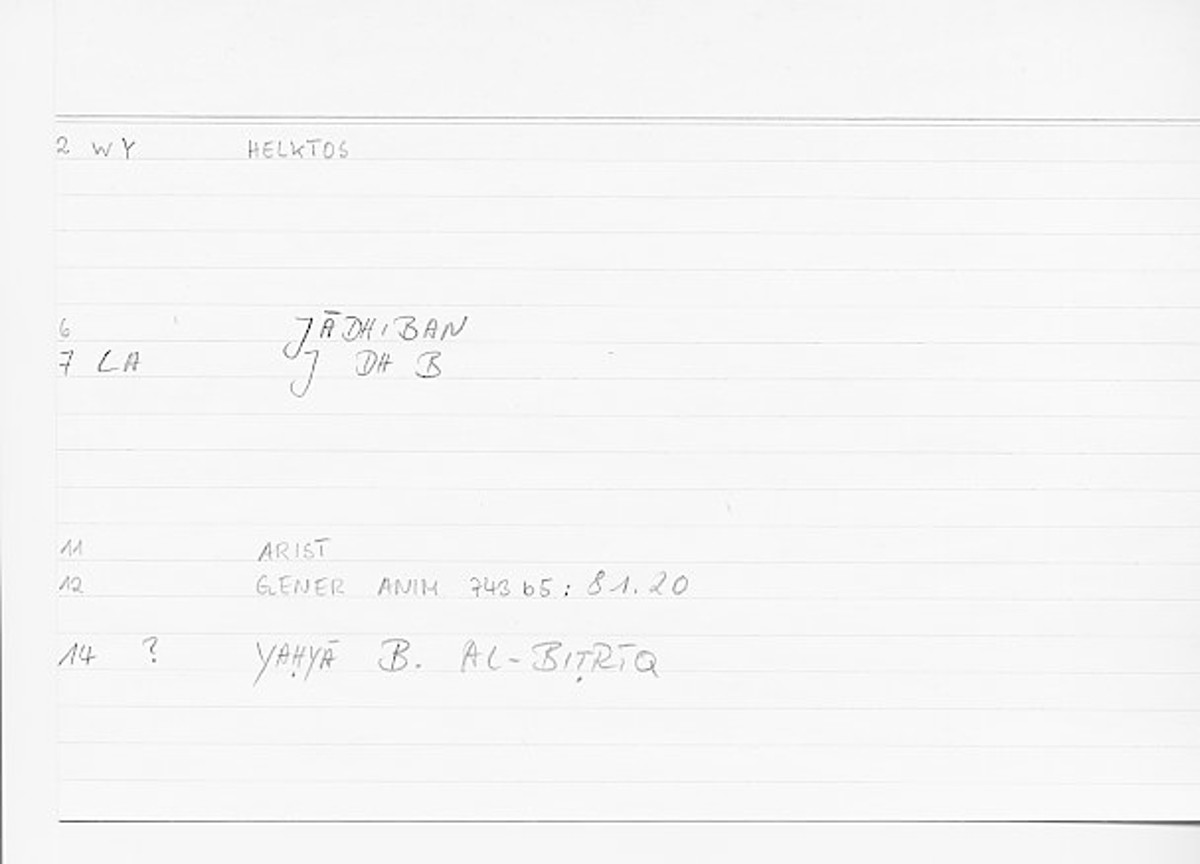 2 WY HELKTOS
6 JĀDHIBAN
7 LA J DH B
11 ARIST
12 GENER ANIM 743 b5 : 81.20
14 ? YAḤYĀ B. AL-BIṬRĪQ